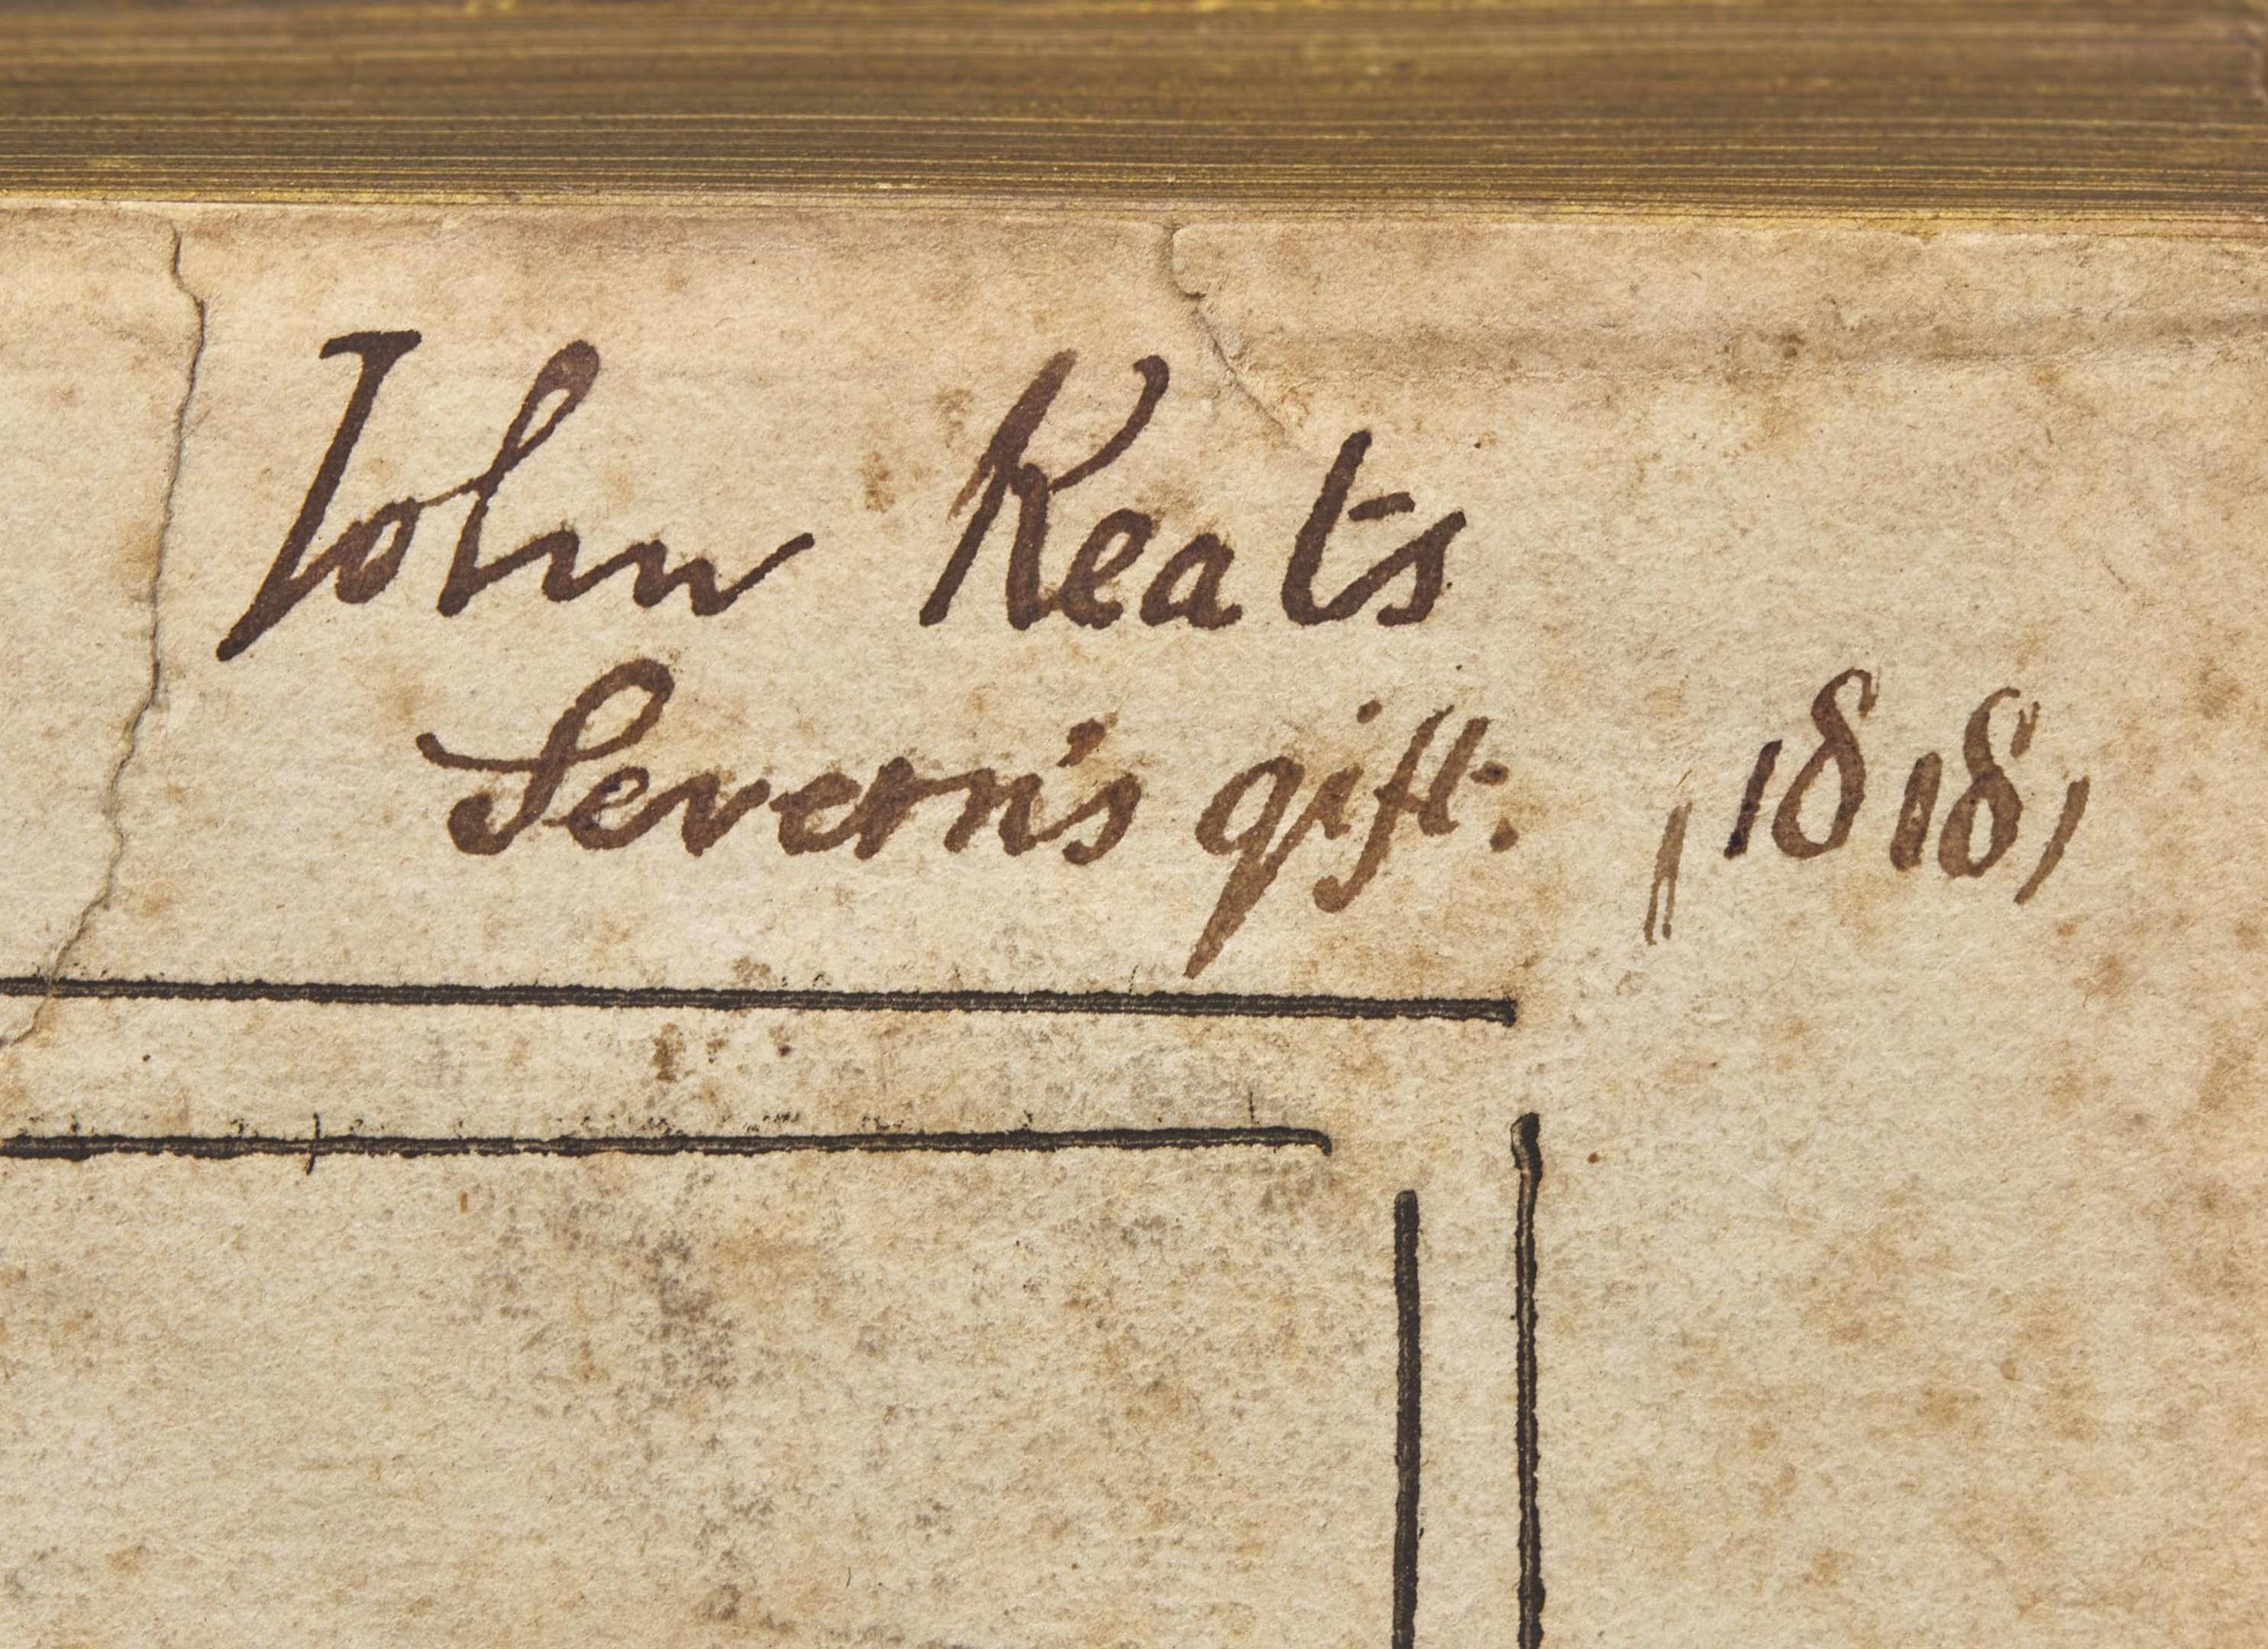 John Keats
Severn's gift. , 1818,